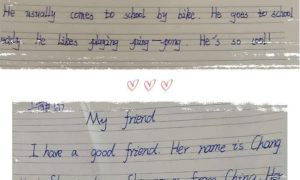 He usually comes to school by bike. He goes to school
He likes playing ping-pong. He's so cool!
My friend
I have a good friend. Her name is Chang
from China. Her